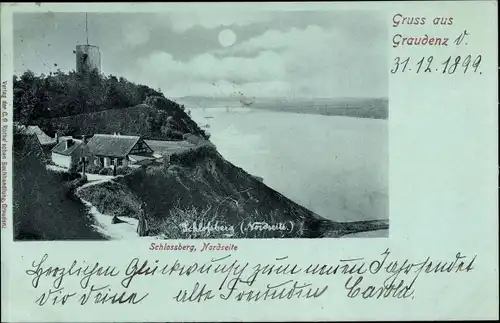 Gruss aus
Graudenz d.
31.12.1899.
Verlag der C. G. Röthe'schen Buchhandlung, Graudenz
Schlossberg (Nordseite)
Schlossberg, Nordseite
Herzlichen Glückwunsch zum neuen Jahr sendet
Dir Deine alte Freundin